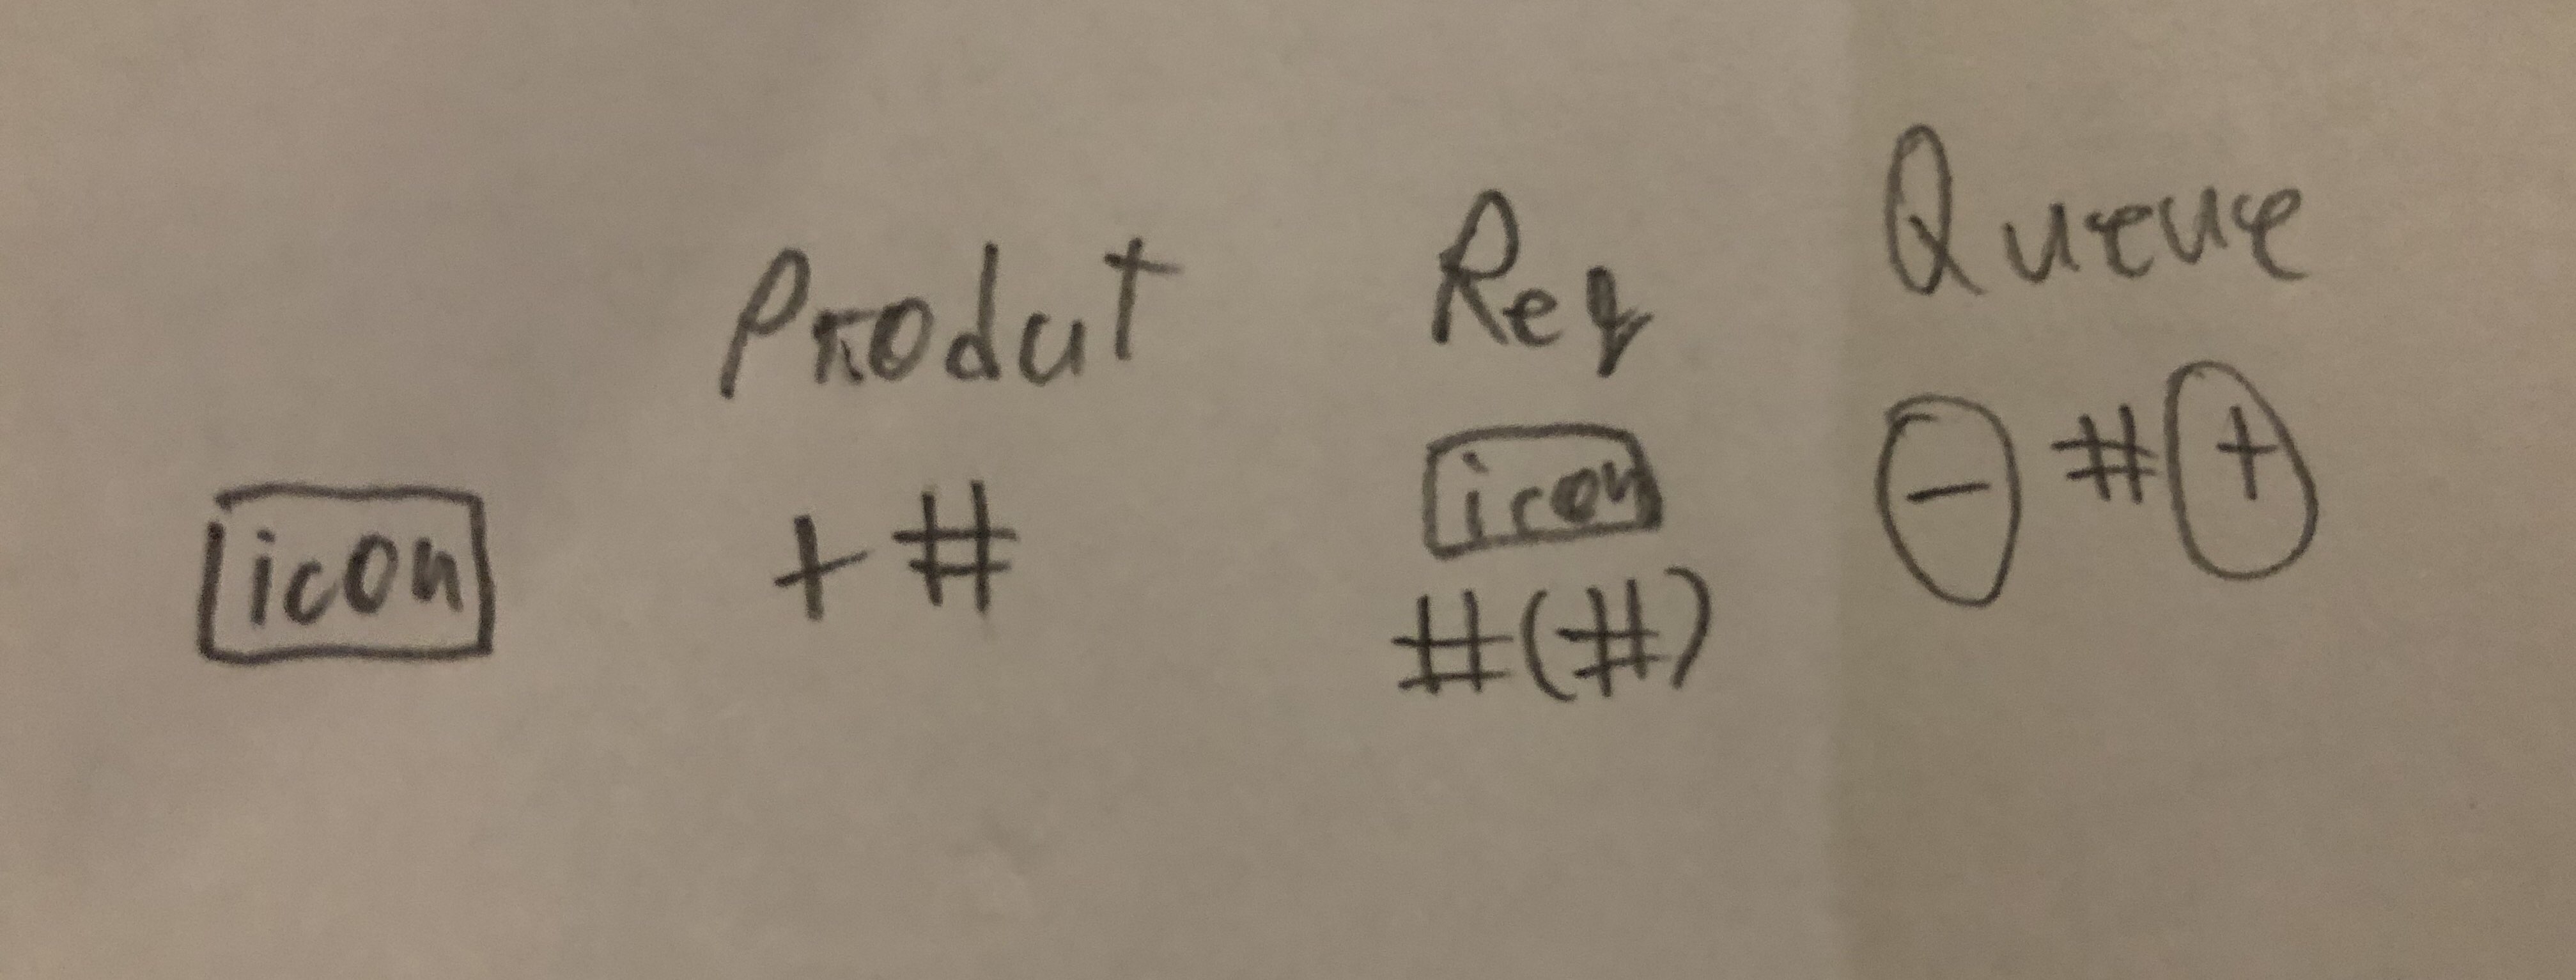 Produt Req Queue
icon + # icon - # +
#(#)